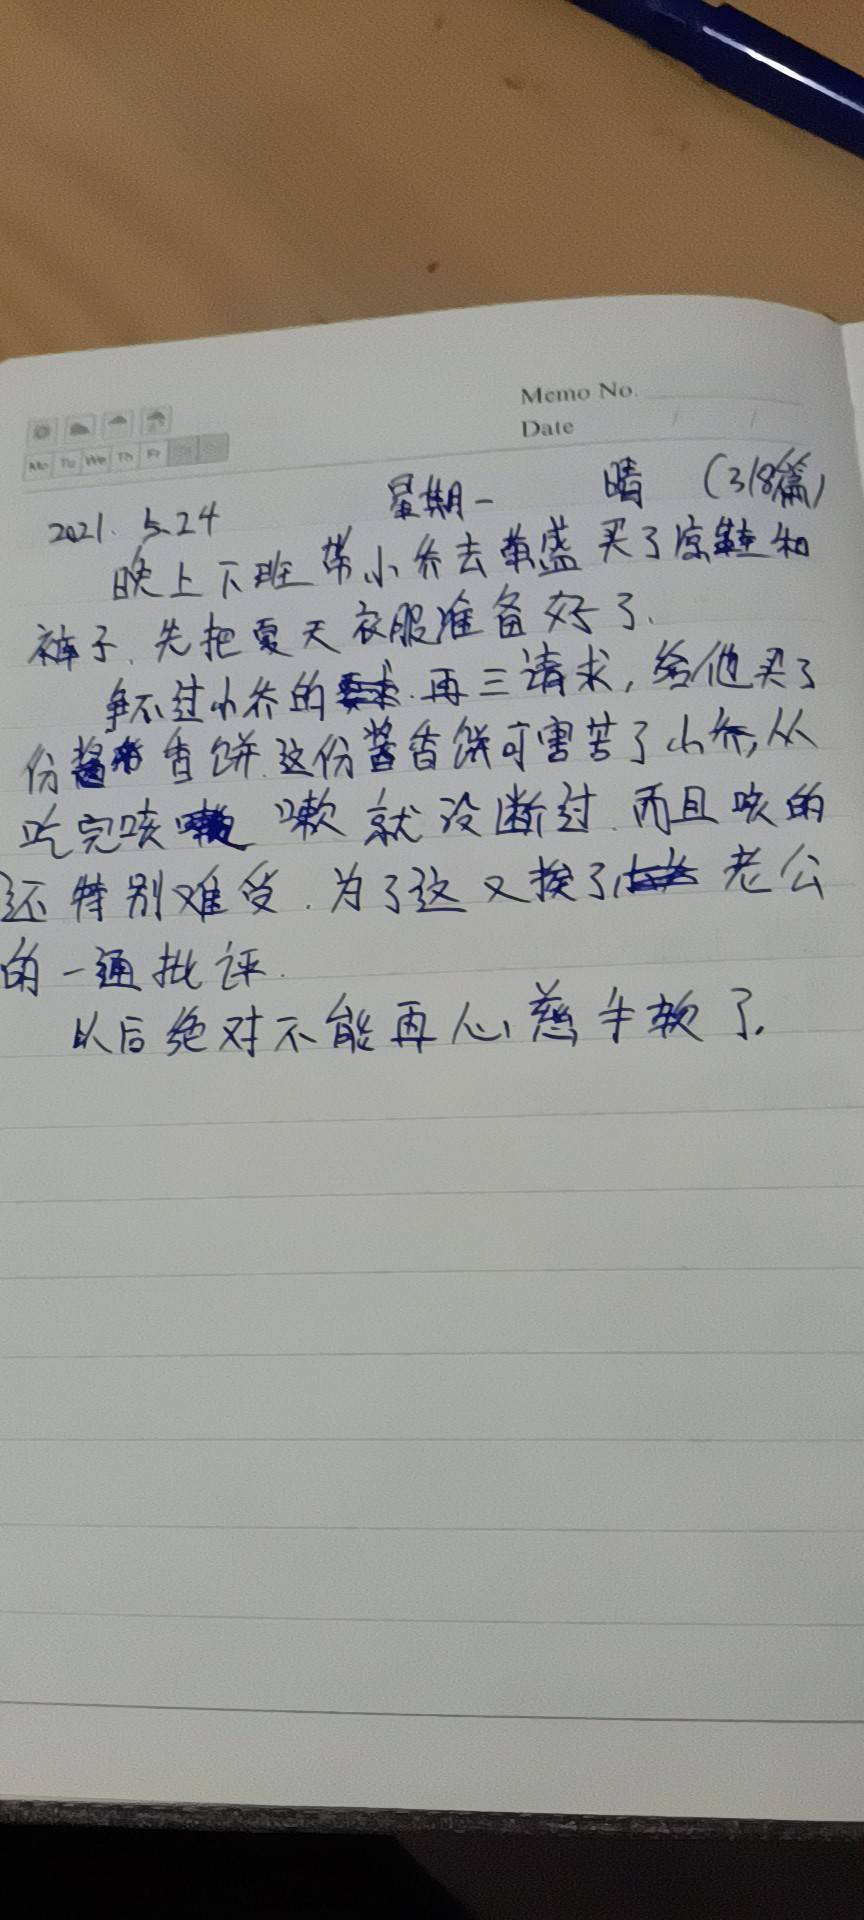 Memo No.
Date / /
Mo Tu We Th Fr
2021. 5.24 星期一 晴 (318篇)
晚上下班带小乔去荣盛买了凉鞋和
裤子.先把夏天衣服准备好了.
争不过小乔的再三请求,给他买了
份酱香饼.这份酱香饼可害苦了小乔,从
吃完咳嗽就没断过.而且咳的
还特别难受.为了这又挨了老公
的一通批评.
以后绝对不能再心慈手软了.